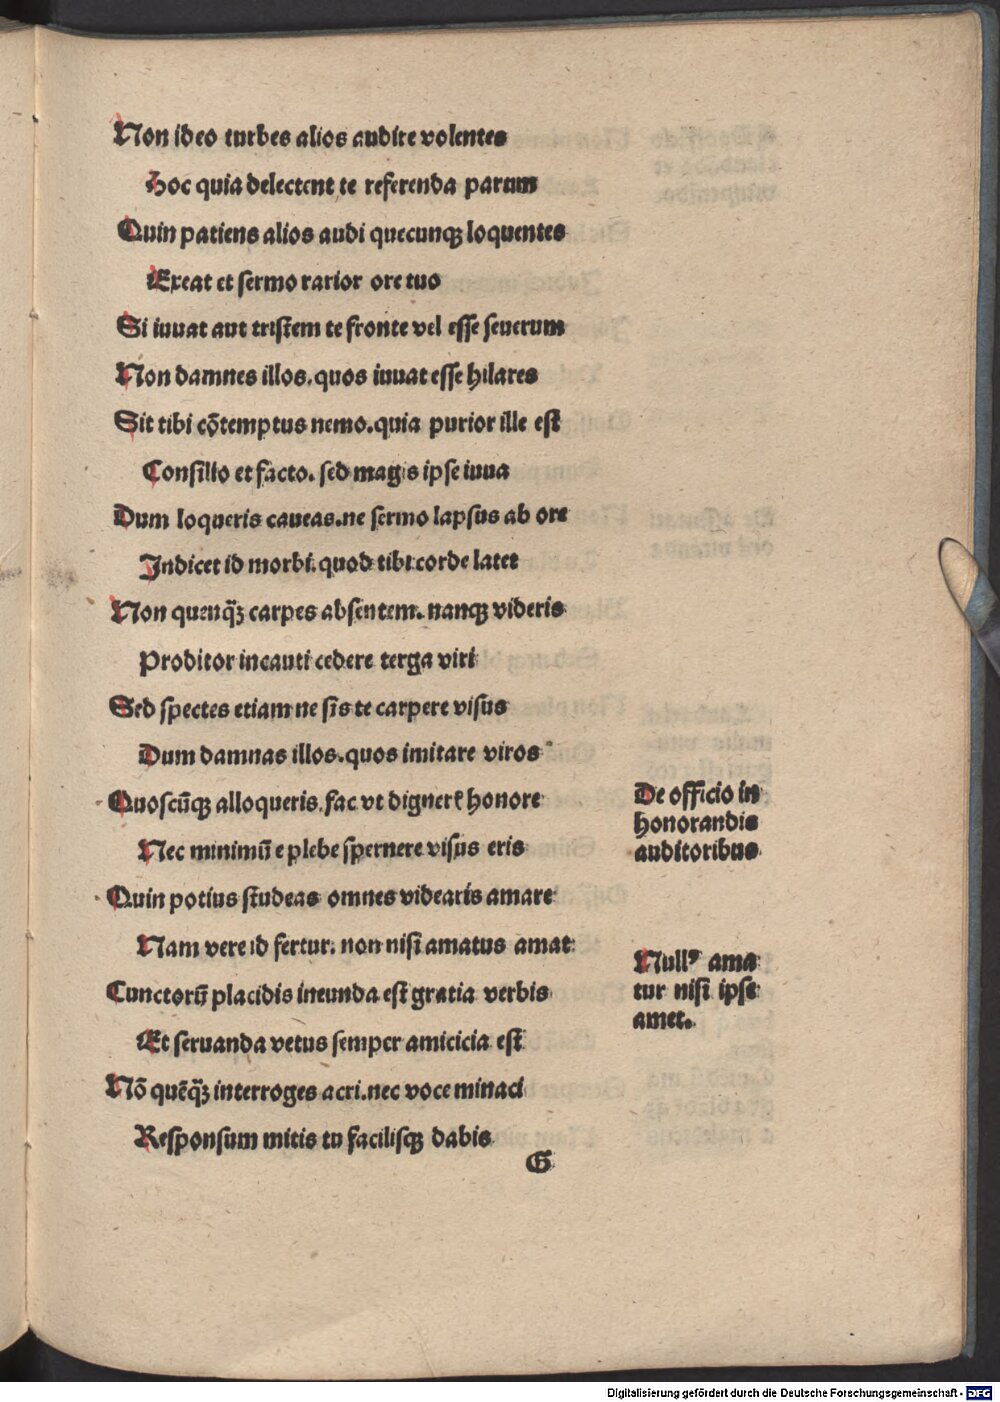 Non ideo turbes alios audire volentes
Hoc quia delectent te referenda parum
Quin patiens alios audi quecunqꝫ loquentes
Exeat et sermo rarior ore tuo
Si iuuat aut tristem te fronte vel esse seuerum
Non damnes illos. quos iuuat esse hilares
Sit tibi cōtemptus nemo. quia purior ille est
Consilio et facto. sed magis ipse iuua
Dum loqueris caueas. ne sermo lapsus ab ore
Indicet id morbi. quod tibi corde latet
Non quenq̄ꝫ carpes absentem. nanqꝫ videris
Proditor incauti cedere terga viri
Sed spectes etiam ne sis te carpere visus
Dum damnas illos. quos imitare viros
Quoscūqꝫ alloqueris. fac vt dignerꝭ honore
Nec minimū e plebe spernere visus eris
Quin potius studeas omnes videaris amare
Nam vere id fertur. non nisi amatus amat
Cunctorū placidis ineunda est gratia verbis
Et seruanda vetus semper amicicia est
Nō quēq̄ꝫ interroges acri. nec voce minaci
Responsum mitis tu facilisqꝫ dabis
G
De officio in
honorandis
auditoribus
Nullꝰ ama
tur nisi ipse
amet.
Digitalisierung gefördert durch die Deutsche Forschungsgemeinschaft - DFG